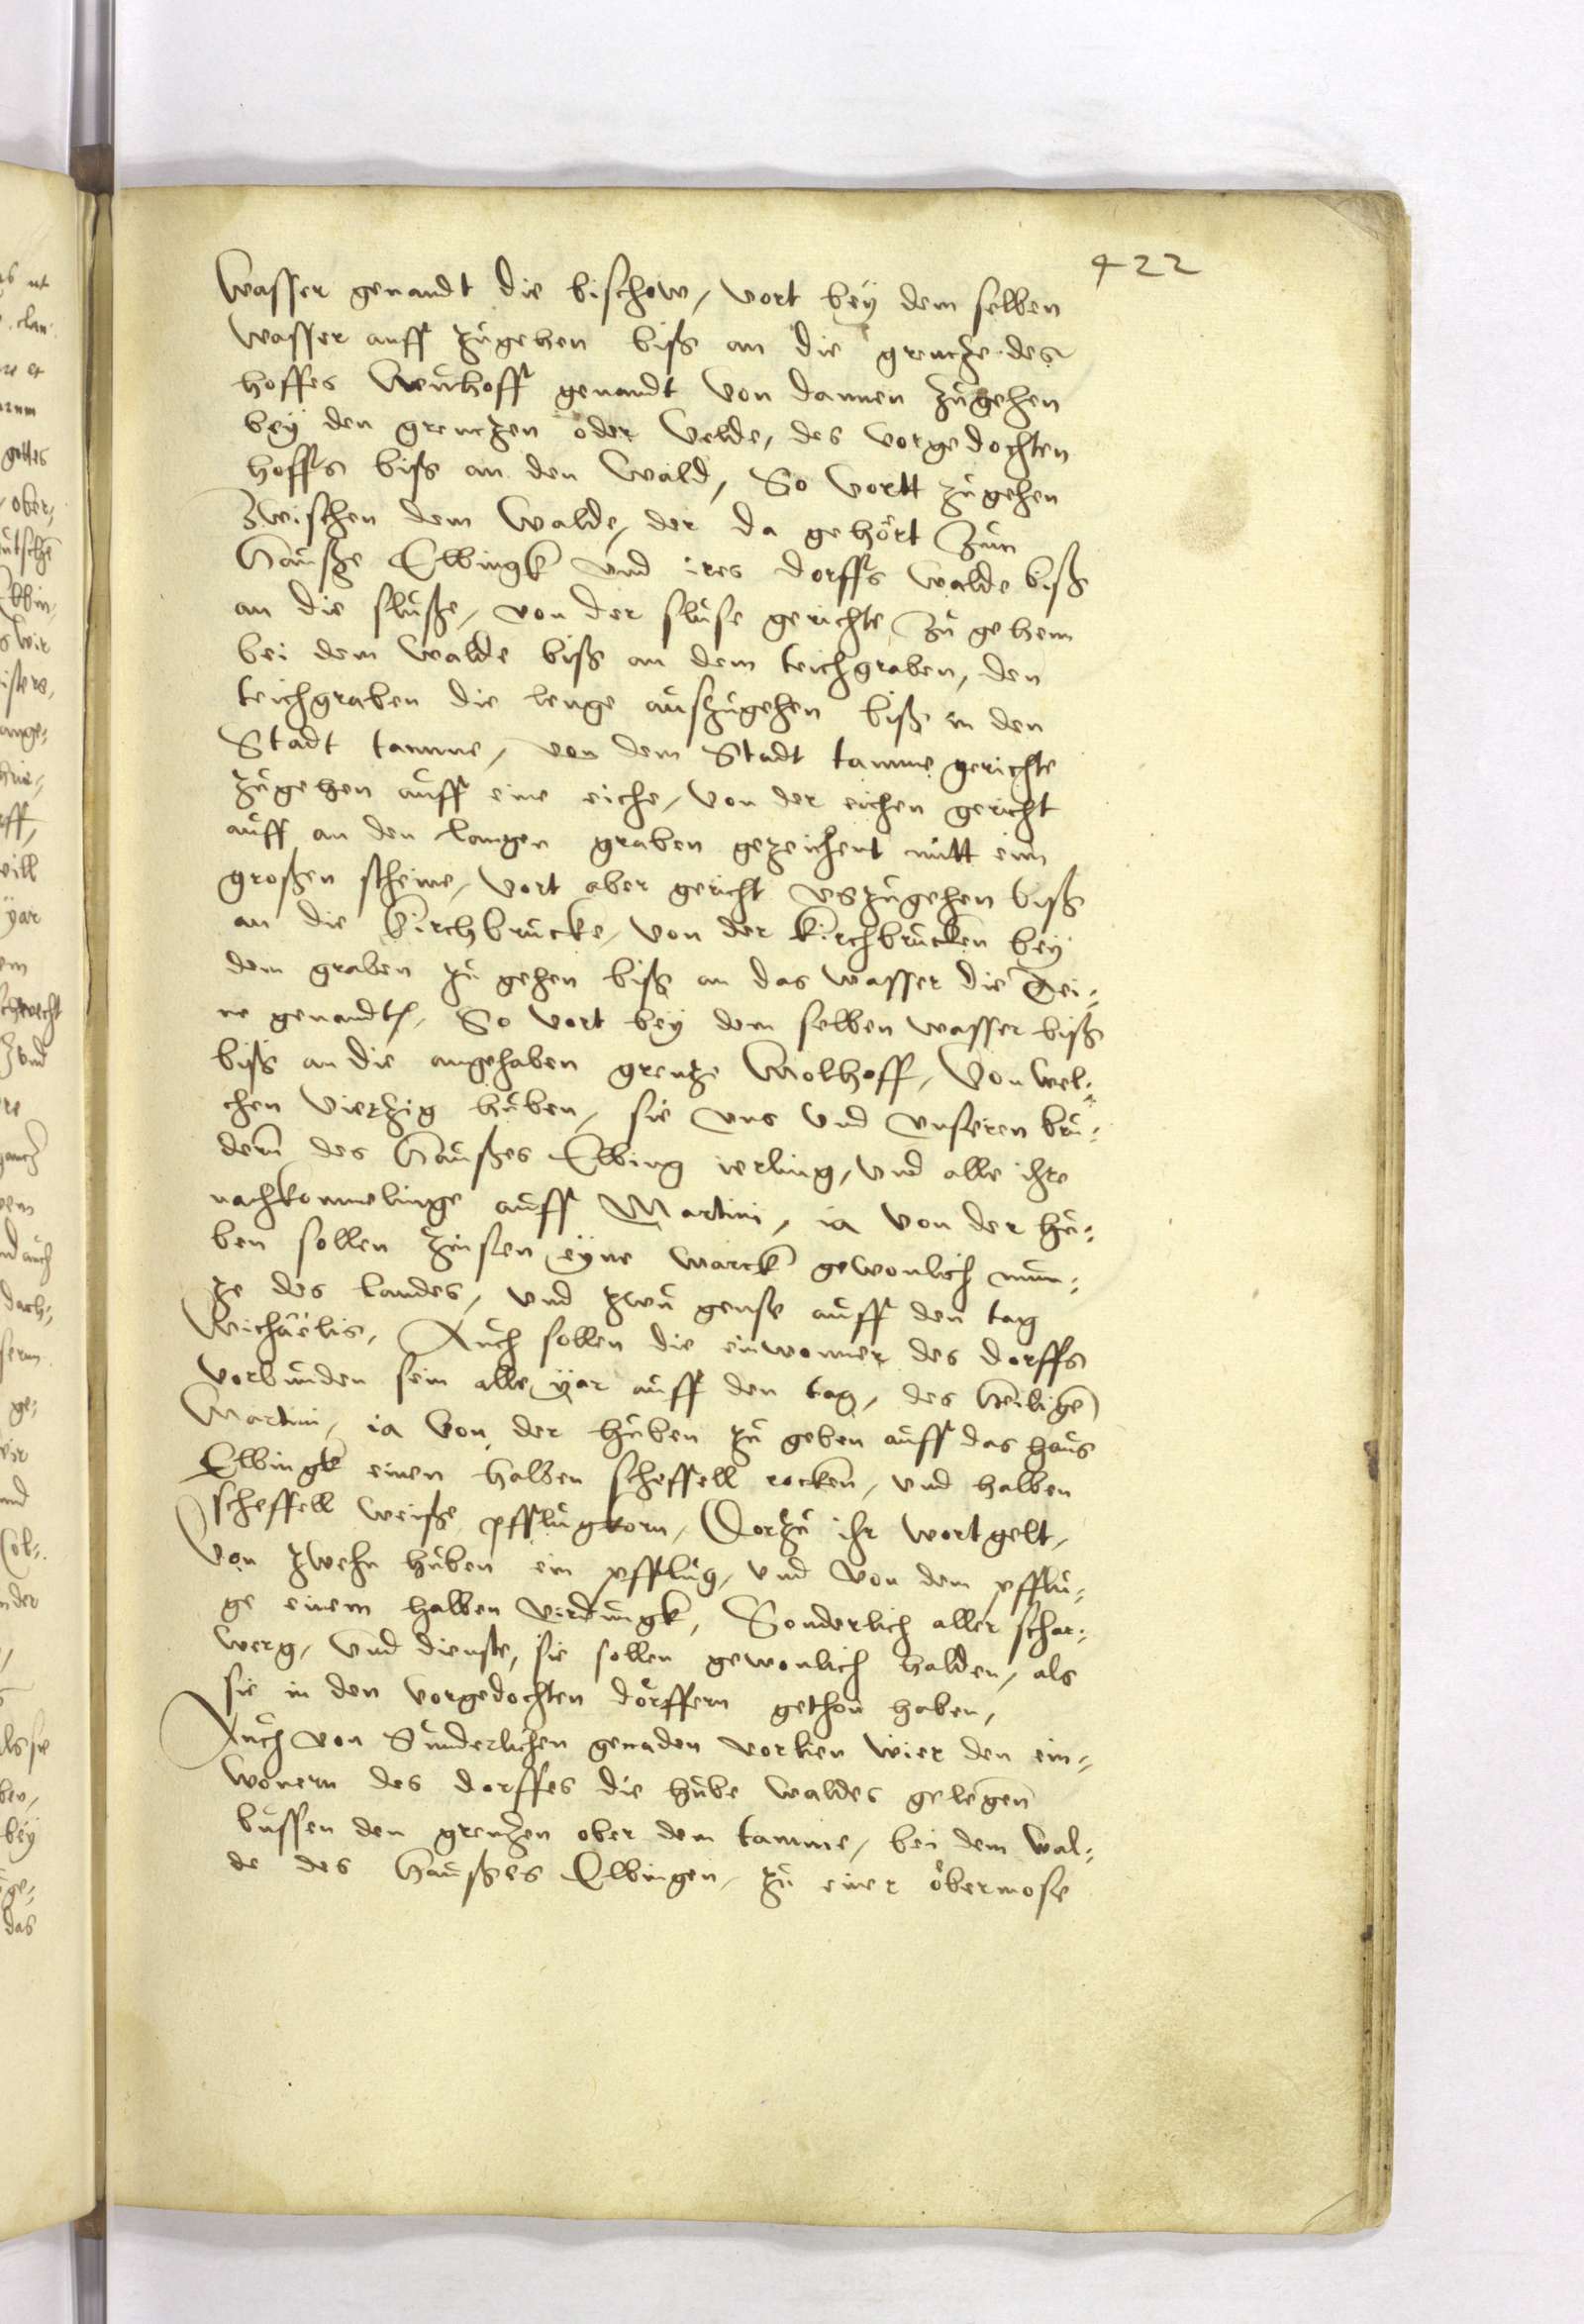 422
Wasser genandt die bischow, vort bey dem selben
wasser auff zugehen biß an die grencze des
hoffes Neuhoff genandt von dannen zugehen
bey den grenczen oder velde, des vorgedochten
hoffs biß an den wald, So vortt zugehen
Zwischen dem Walde, der da gehört Zum
Hauße Elbingk und ires dorffs walde biß
an die sluße, von der sluse gerichte Zu gehenn
bei dem walde biß an dem teichgraben, den
teichgraben die lenge auszugehen biß in den
Stadt tamme, von dem Stadt tamme gerichte
zugehen auff eine eiche, von der eichen gericht
auff an den langen graben gezeichent mitt eim
großen steine, vort aber gericht uszugehen biß
an die kirchbrucke, von der kirchbrucken bey
dem graben zu gehen biß an das wasser die Tei-;
ne genandt, So vort bey dem selben wasser biß
biß an die angehaben grentze Molhoff, Von wel-;
chen vierzig huben, sie uns und unseren bru-;
dern des Haußes Elbing ierling, und alle ihre
nachkommelinge auff Martini, ia von der hu-;
ben sollen zinsen eyne marck gewonlich mun-;
ze des landes, und zwu gense auff den tag
Michaëlis, Auch sollen die einwonner des dorffs
vorbunden sein alle yar auff den tag, des heiligen
Martini, ia von der huben zu geben auff das haus
Elbingk einen halben scheffell rocken, und halben
scheffell weiße pfflugkorn, Dorzu ihr wortgelt,
Von zwehn huben ein pfflug, und von dem pfflu-;
ge einem halben virdungk, Sonderlich aller schar-;
werg, und dienste, sie sollen gewonlich halden, als
sie in den vorgedochten dörffern gethon haben,
Auch von Sunderlichen genaden vorlien wier den ein-;
wonern des dorffes die hube waldes gelegen
bussen den grenzen ober dem tamme, bei dem wal-;
de des haußes Elbingen, zu einer öbermose